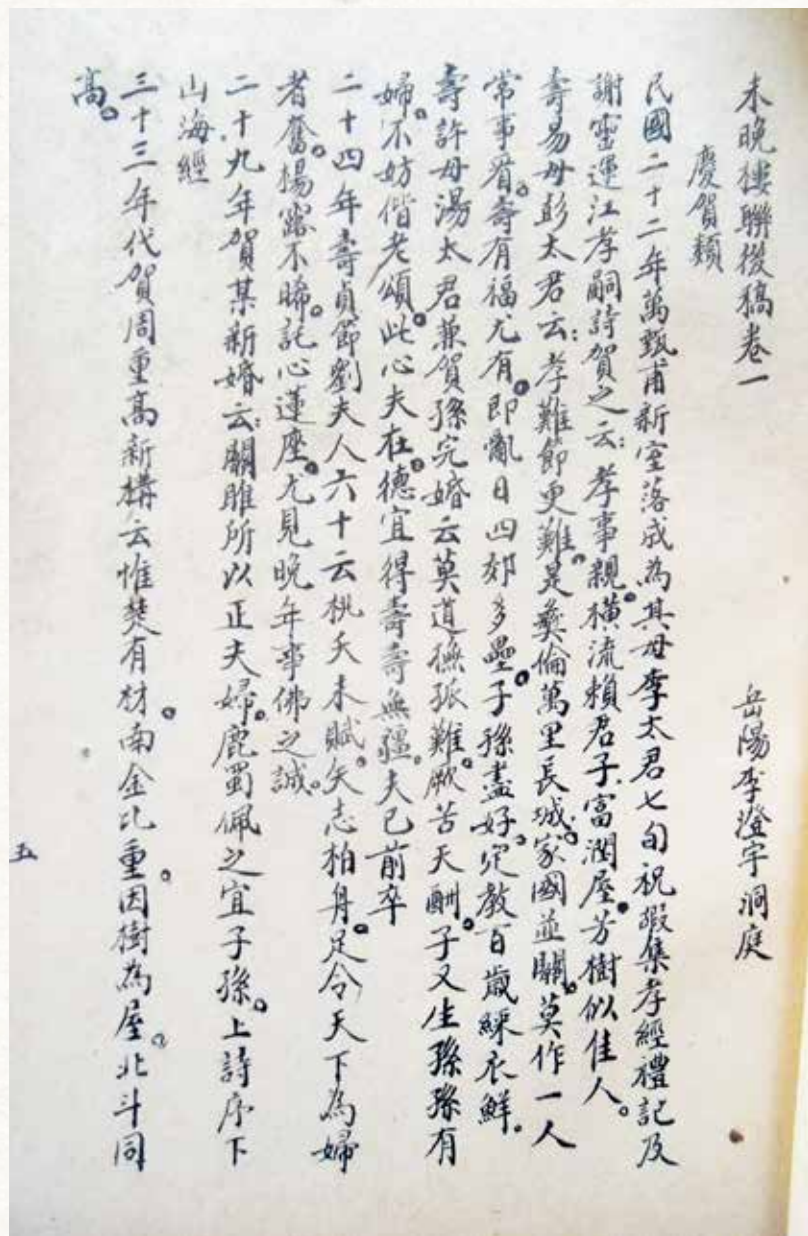 未晚樓聯後稿卷一
岳陽李澄宇洞庭
慶賀類
民國二十二年萬甄甫新室落成為其母李太君七旬祝嘏集孝經禮記及
謝靈運江孝嗣詩賀之云：孝事親。橫流賴君子，富潤屋。芳樹似佳人。
壽易母彭太君云：孝難節更難。是彝倫萬里長城。家國並關。莫作一人
常事看。壽有福尤有。即亂日四郊多壘。子孫盡好。定教百歲綵衣鮮。
壽許母湯太君兼賀孫完婚云莫道撫孤難。厥苦天酬。子又生孫孫有
婦。不妨偕老頌。此心夫在。德宜得壽壽無疆。夫已前卒
二十四年壽貞節劉夫人六十云桃夭未賦。矢志柏舟。足令天下為婦
者奮。楊露不晞。託心蓮座。尤見晚年事佛之誠。
二十九年賀某新婚云：關雎所以正夫婦。鹿蜀佩之宜子孫。上詩序下
山海經
三十三年代賀周重高新構云惟楚有材。南金比重。因樹為屋。北斗同
高。
五